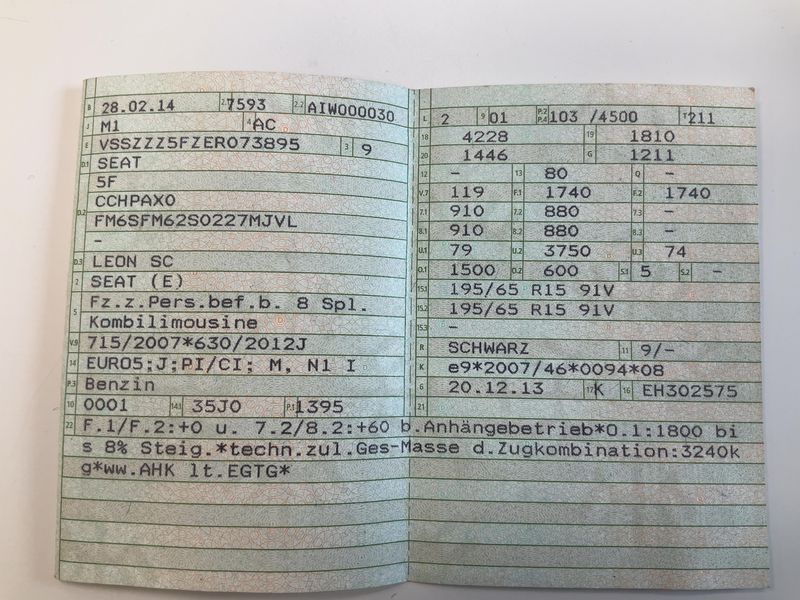 B 28.02.14 2.1 7593 2.2 AIW000030
J M1 4 AC
E VSSZZZ5FZER073895 3 9
D.1 SEAT
5F
D.2 CCHPAX0
FM6SFM62S0227MJVL
-
D.3 LEON SC
2 SEAT (E)
5 Fz.z.Pers.bef.b. 8 Spl.
Kombilimousine
V.9 715/2007*630/2012J
14 EURO5;J;PI/CI; M, N1 I
P.3 Benzin
10 0001 14.1 35J0 P.1 1395
L 2 9 01 P.2 P.4 103 /4500 T 211
18 4228 19 1810
20 1446 G 1211
12 - 13 80 Q -
V.7 119 F.1 1740 F.2 1740
7.1 910 7.2 880 7.3 -
8.1 910 8.2 880 8.3 -
U.1 79 U.2 3750 U.3 74
O.1 1500 O.2 600 S.1 5 S.2 -
15.1 195/65 R15 91V
15.2 195/65 R15 91V
15.3 -
R SCHWARZ 11 9/-
K e9*2007/46*0094*08
6 20.12.13 17 K 16 EH302575
21
22 F.1/F.2:+0 u. 7.2/8.2:+60 b.Anhängebetrieb*O.1:1800 bi
s 8% Steig.*techn.zul.Ges-Masse d.Zugkombination:3240k
g*ww.AHK lt.EGTG*